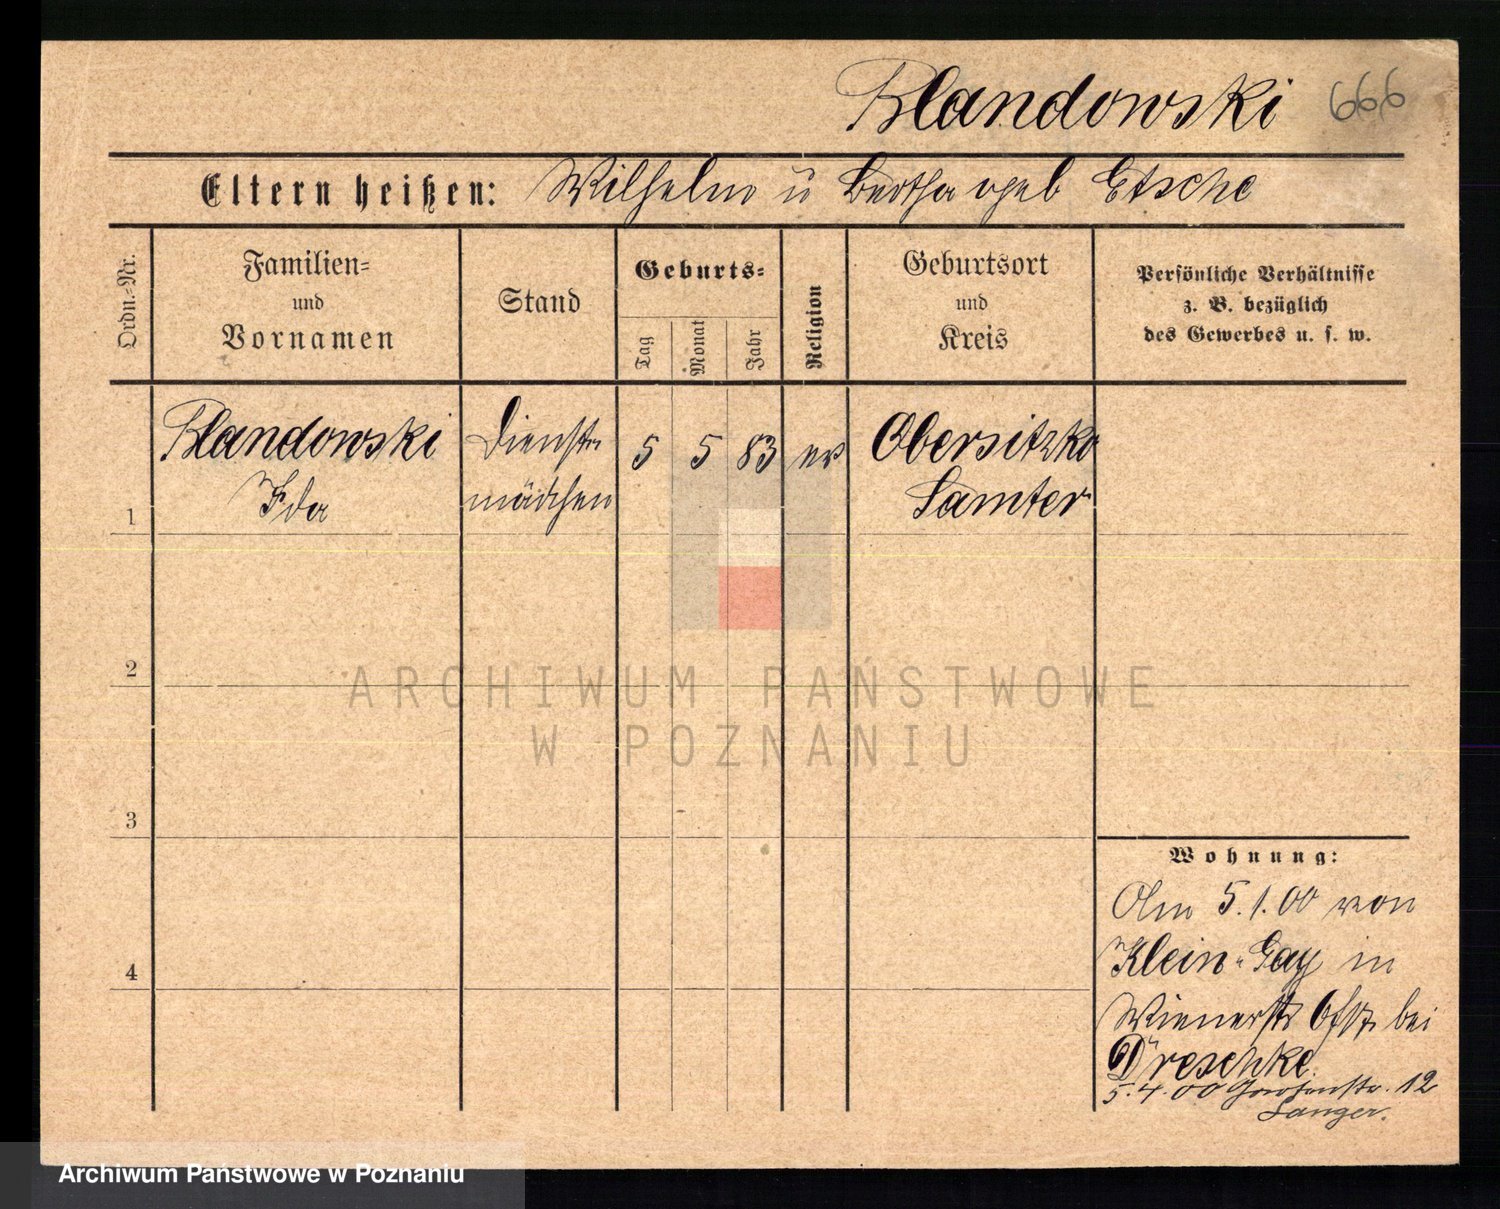 Blandowski 666
Eltern heißen: Wilhelm u Bertha geb Etsche
Ordn.-Nr.
Familien-
und
Vornamen
Stand
Geburts-
Tag
Monat
Jahr
Religion
Geburtsort
und
Kreis
Persönliche Verhältnisse
z. B. bezüglich
des Gewerbes u. s. w.
Blandowski Dienst- 5 5 83 ev Obersitzko
1 Ida mädchen Samter
2
ARCHIWUM PAŃSTWOWE
W POZNANIU
3
Wohnung:
Am 5.1.00 von
4 Klein-Gay in
Wienerstr bei
Dreschke.
5.4.00 Gartenstr. 12
Langer.
Archiwum Państwowe w Poznaniu